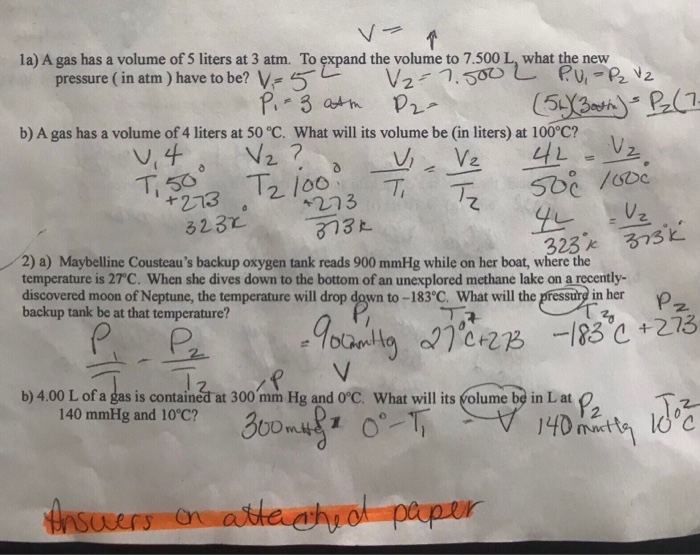 V = ↑
1a) A gas has a volume of 5 liters at 3 atm. To expand the volume to 7.500 L, what the new
pressure ( in atm ) have to be? V₁= 5 L V₂= 7.500 L P₁V₁ = P₂ V₂
P₁ = 3 atm P₂= (5L)(3atm) = P₂(7.
b) A gas has a volume of 4 liters at 50 °C. What will its volume be (in liters) at 100°C?
V₁ 4 V₂ ? V₁ = V₂ 4L = V₂
T₁ 50° T₂ 100° T₁ T₂ 50°C 100°C
+273 +273 4L = V₂
323°K 373 K 323°K 373°K
2) a) Maybelline Cousteau's backup oxygen tank reads 900 mmHg while on her boat, where the
temperature is 27°C. When she dives down to the bottom of an unexplored methane lake on a recently-
discovered moon of Neptune, the temperature will drop down to –183°C. What will the pressure in her
backup tank be at that temperature? P₁ T₂ P₂
P₁ = P₂ = 900mmHg 27°C+273 -183°C +273
T₁ T₂ V
b) 4.00 L of a gas is contained at 300 mm Hg and 0°C. What will its volume be in L at P₂ T₂
140 mmHg and 10°C? 300mmHg 0°-T₁ - V 140 mmHg 10°C
Answers on attached paper